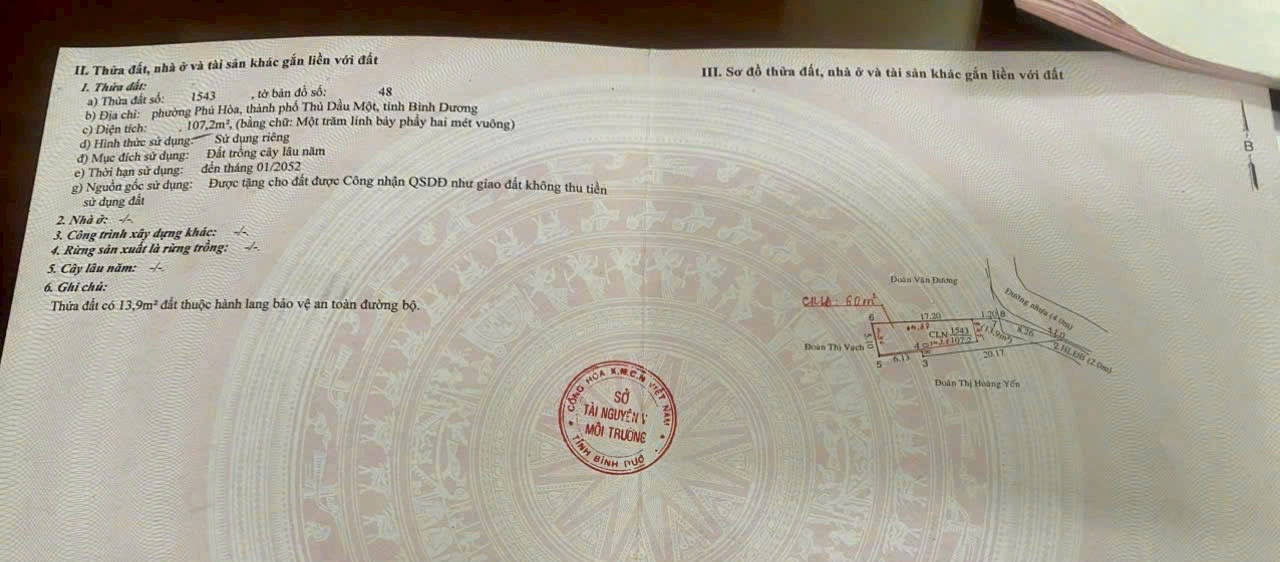 II. Thửa đất, nhà ở và tài sản khác gắn liền với đất
1. Thửa đất:
a) Thửa đất số: 1543 , tờ bản đồ số: 48
b) Địa chỉ: phường Phú Hòa, thành phố Thủ Dầu Một, tỉnh Bình Dương
c) Diện tích: 107,2m², (bằng chữ: Một trăm linh bảy phẩy hai mét vuông)
d) Hình thức sử dụng: Sử dụng riêng
đ) Mục đích sử dụng: Đất trồng cây lâu năm
e) Thời hạn sử dụng: đến tháng 01/2052
g) Nguồn gốc sử dụng: Được tặng cho đất được Công nhận QSDĐ như giao đất không thu tiền
sử dụng đất
2. Nhà ở: -/-.
3. Công trình xây dựng khác: -/-.
4. Rừng sản xuất là rừng trồng: -/-.
5. Cây lâu năm: -/-.
6. Ghi chú:
Thửa đất có 13,9m² đất thuộc hành lang bảo vệ an toàn đường bộ.
III. Sơ đồ thửa đất, nhà ở và tài sản khác gắn liền với đất
B
Đoàn Văn Dương
Đường nhựa (4.0m)
60m²
6
17.20
1.20
8
7
CLN
1543
107.2
(13.9m²)
8.26
Đoàn Thị Vạch
5.10
5
6.13
4
3
20.17
2
HLĐB (2.0m)
Đoàn Thị Hoàng Yến
CỘNG HÒA X.H.C.N VIỆT NAM
SỞ
TÀI NGUYÊN V
MÔI TRƯỜNG
TỈNH BÌNH DƯƠ